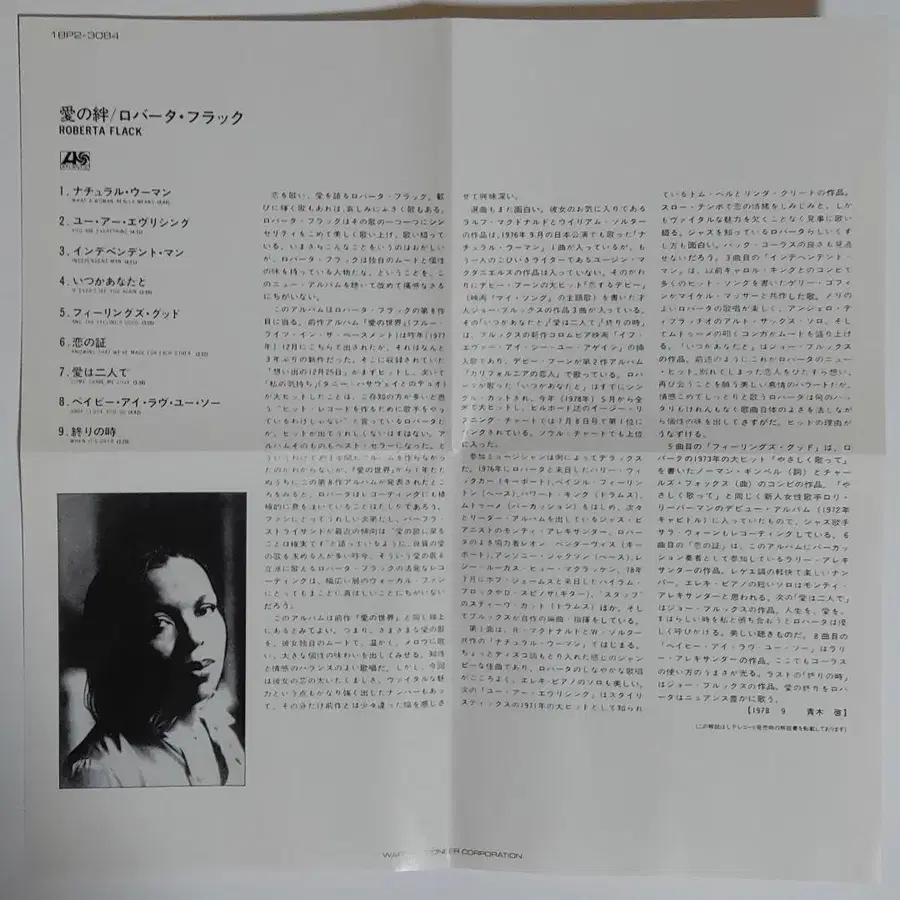 18P2-3084
愛の絆/ロバータ・フラック
ROBERTA FLACK
ATLANTIC
1.ナチュラル・ウーマン
WHAT A WOMAN REALLY MEANS
2.ユー・アー・エヴリシング
YOU ARE EVERYTHING
3.インデペンデント・マン
INDEPENDENT MAN
4.いつかあなたと
IF EVER I SEE YOU AGAIN
5.フィーリングズ・グッド
AND THE FEELING'S GOOD
6.恋の証
KNOWING THAT WE'RE MADE FOR EACH OTHER
7.愛は二人で
COME SHARE MY LOVE
8.ベイビー・アイ・ラヴ・ユー・ソー
BABY I LOVE YOU SO
9.終りの時
WHEN IT'S OVER
恋を歌い、愛を語るロバータ・フラック。歓
びに輝く歌もあれば、哀しみにふさぐ歌もある。
ロバータ・フラックはその歌の一つ一つにシン
セリティをこめて美しく歌い上げ、歌い綴って
いる。いまさらこんなことをいうのはおかしい
が、ロバータ・フラックは独自のムードと個性
の味を持っている人物だな、ということを、こ
のニュー・アルバムを聴いて改めて痛感なさる
にちがいない。
このアルバムはロバータ・フラックの第8作
目に当る。前作アルバム「愛の世界」(ブルー・
ライツ・イン・ザ・ベースメント)は昨年(1977
年)12月にこちらで出されたが、それはなんと
3年ぶりの新作だった。そこに収録されていた
「想い出の12月25日」がまずヒットし、次いで
「私の気持ち」(ダニー・ハサウェイとのデュオ)
が大ヒットしたことは、ご存知の方が多いと思
う。"ヒット・レコードを作るために歌手をやっ
ているわけじゃない"と言っているロバータだ
が、ヒットが出てうれしくないはずはない。ア
ルバムそのものもベスト・セラーになった。
「愛の世界」から1年たた
ぬうちにこの第8作アルバムが発表されたとこ
ろをみると、ロバータはレコーディングにも積
極的に意を注いでいることはたしかであろう。
ファンにとってうれしい次第だし、バーブラ・
ストライサンドが最近の傾向は"愛の歌に戻る
ことは確実です"と語っているように、良質の愛
の歌を求める人が多い昨今、そういう愛の歌を
立派に歌えるロバータ・フラックの活発なレコ
ーディングは、幅広い層のヴォーカル・ファン
にとってもまことに喜ばしいことにちがいない
だろう。
このアルバムは前作「愛の世界」と同じ線上
にあるとみてよい。つまり、さまざまな愛の歌
を、彼女独自のムードで、温かく、メロウに歌
い、大きな個性の味わいを出してみせる。知性
と情感のバランスのよい歌唱だ。しかし、今回
は彼女の芯の大いたくましさ、ヴァイタルな魅
力という点もかなり強く出したナンバーもあっ
て、その分だけ前作とは少々違った焔を感じさ
せて興味深い。
選曲もまた面白い。彼女のお気に入りである
ラルフ・マクドナルドとウイリアム・ソルター
の作品は、1976年9月の日本公演でも歌った「ナ
チュラル・ウーマン」1曲が入っているが、も
う一人のごひいきライターであるユージン・マ
クダニエルスの作品は入っていない。そのかわ
りにデビー・ブーンの大ヒット「恋するデビー」
(映画「マイ・ソング」の主題歌)を書いた才
人ジョー・ブルックスの作品3曲が入っている。
その「いつかあなたと」「愛は二人で」「終りの時」
は、ブルックスの新作コロムビア映画「イフ・
エヴァー・アイ・シー・ユー・アゲイン」の挿
入歌であり、デビー・ブーンが第2作アルバム
「カリフォルニアの恋人」で歌っている。ロバー
タが歌った「いつかあなたと」はすでにシング
ル・カットされ、今年(1978年)5月から全
米で大ヒットし、ビルボード誌のイージー・リ
スニング・チャートでは7月8日号で第1位に
ランクされている。ソウル・チャートでも上位
に入った。
参加ミュージシャンは例によってデラックス
だ。1976年にロバータと来日したハリー・ウィ
ッタカー(キーボード)、ベイジル・フィーリン
トン(ベース)、ハワード・キング(ドラムス)、
ムトゥーメ(パーカッション)をはじめ、次々
とリーダー・アルバムを出しているジャズ・ピ
アニストのモンティ・アレキサンダー、ロバー
タのよき協力者レオン・ペンダーヴィス(キー
ボード)、アンソニー・ジャクソン(ベース)、レ
ジー・ルーカス・ヒュー・マクラッケン、78年
7月にボブ・ジェームスと来日したハイラム・
ブロックやD・スピノザ(ギター)、"スタッフ"
のスティーヴ・ガッド(ドラムス)ほか。そし
てブルックスが自作の編曲・指揮をしている。
第1曲は、R・マクドナルドとW・ソルター
共作の「ナチュラル・ウーマン」ではじまる。
ちょっとディスコ調もとり入れた感じのジャン
ピーな佳曲であり、ロバータのしなやかな歌唱
がこころよく、エレキ・ピアノのソロも美しい。
次の「ユー・アー・エヴリシング」はスタイリ
スティックスの1971年の大ヒットとして知られ
ているトム・ベルとリンダ・クリードの作品。
スロー・テンポで恋の情緒をしみじみと、しか
もヴァイタルな魅力を欠くことなく見事に歌い
綴る。ジャズを知っているロバータらしいくず
し方も面白い。バック・コーラスの良さも見逃
せないだろう。3曲目の「インデペンデント・
マン」は、以前キャロル・キングとのコンビで
多くのヒット・ソングを書いたゲリー・ゴフィ
ンがマイケル・マッサーと共作した歌。ノリの
よいロバータの歌唱が楽しく、アンジェロ・デ
ィブラッチオのアルト・サックス・ソロ、そし
てムトゥーメの叩くコンガがムードを盛り上げ
る。「いつかあなたと」はジョー・ブルックス
の作品。前述のようにこれがロバータのニュー
・ヒット。別れてしまった恋人をひたすら想い、
再び会うことを願う美しい哀情のバラードだが、
情感こめてしっとりと歌うロバータは何のハッ
タリもけれんもなく歌曲自体のよさを活しなが
ら個性の味を出してさすがだ。ヒットの理由が
うなずける。
5曲目の「フィーリングズ・グッド」は、ロ
バータの1973年の大ヒット「やさしく歌って」
を書いたノーマン・ギンベル(詞)とチャー
ルズ・フォックス(曲)のコンビの作品。「や
さしく歌って」と同じく新人女性歌手ロリ・
リーバーマンのデビュー・アルバム(1972年
キャピトル)に入っていたもので、ジャズ歌手
サラ・ヴォーンもレコーディングしている。6
曲目の「恋の証」は、このアルバムにパーカッ
ション奏者として参加しているラリー・アレキ
サンダーの作品。レゲエ調の軽快で楽しいナン
バー。エレキ・ピアノの短いソロはモンティ・
アレキサンダーと思われる。次の「愛は二人で」
はジョー・ブルックスの作品。人生を、愛を、
すばらしい時を私と頒ち合おうとロバータは優
しく呼びかける。美しい聴きものだ。8曲目の
「ベイビー・アイ・ラヴ・ユー・ソー」はラリ
ー・アレキサンダーの作品。ここでもコーラス
の使い方のうまさが光る。ラストの「終りの時」
はジョー・ブルックスの作品。愛の終りをロバ
ータはニュアンス豊かに歌う。
[1978 9 青木 啓]
(この解説はLPレコード発売時の解説書を転載しております)
WARNER-PIONEER CORPORATION